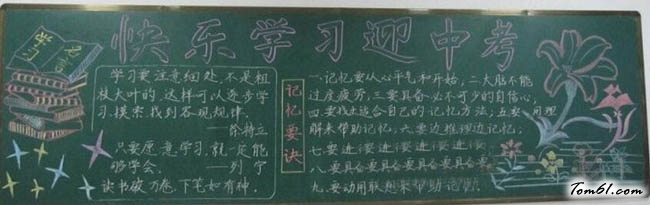 快乐学习迎中考
学习
名言
学习要注意细处,不是粗
枝大叶的,这样可以逐步学
习、摸索,找到客观规律。
——徐特立
只要愿意学习,就一定能
够学会。——列宁
读书破万卷,下笔如有神。
记忆要诀
一.记忆要从心平气和开始,二大脑不能
过度疲劳,三要具备必不可少的自信心,
四.要找出适合自己的记忆方法,五要用理
解来帮助记忆,六.要边推理边记忆,
九.要动用联想来帮助记忆。
Tom61.com